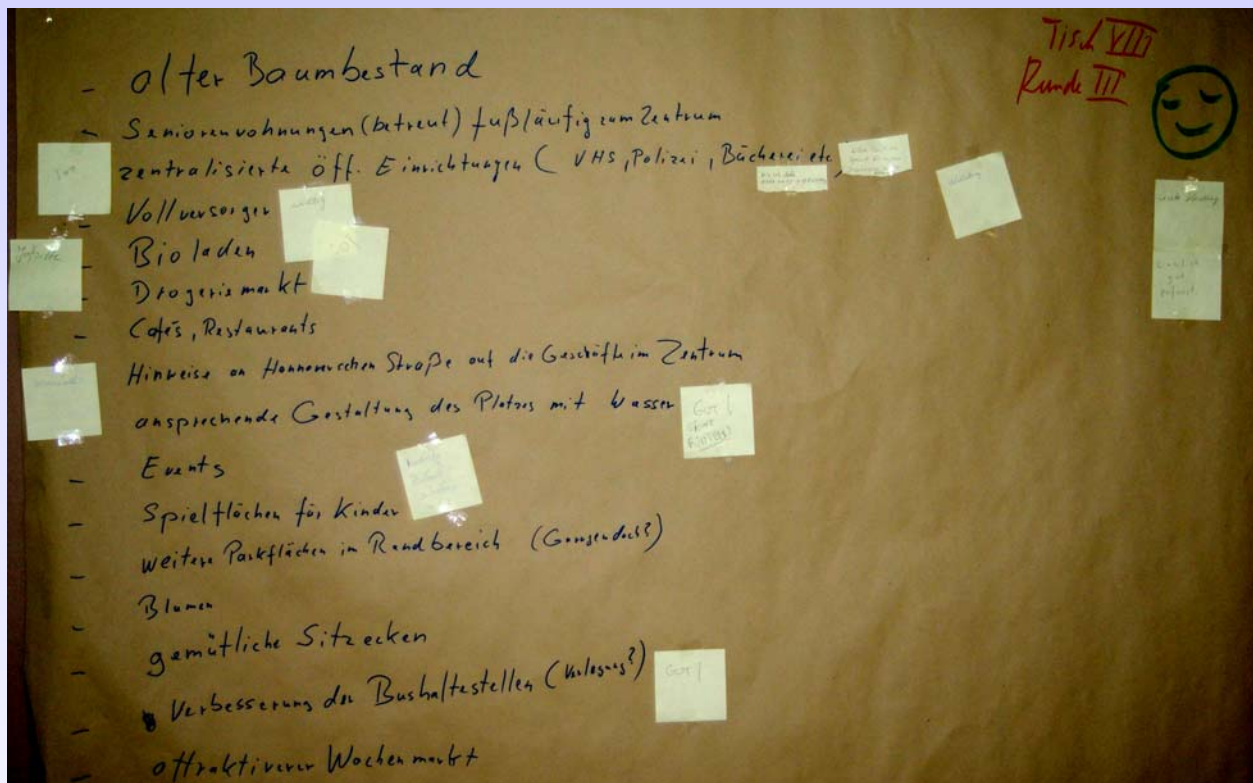 Tisch VIII
Runde III
- alter Baumbestand
- Seniorenwohnungen (betreut) fußläufig zum Zentrum
zentralisierte öff. Einrichtungen ( VHS, Polizei, Bücherei etc
gut
- Vollversorger
wichtig
wichtig
- Bioladen
- Drogeriemarkt
- Cafés, Restaurants
Hinweise an Hannoverschen Straße auf die Geschäfte im Zentrum
ansprechende Gestaltung des Platzes mit Wasser
Gut!
- Events
- Spielflächen für Kinder
- weitere Parkflächen im Randbereich
- Blumen
- gemütliche Sitzecken
- Verbesserung der Bushaltestellen (Verlegung?)
Gut!
- attraktiverer Wochenmarkt